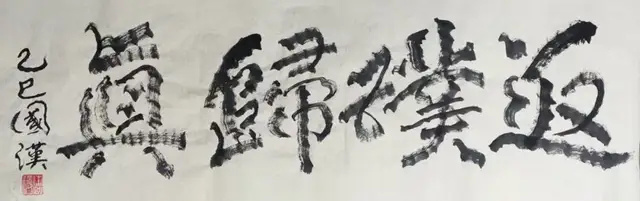 返璞歸真
乙巳國漢